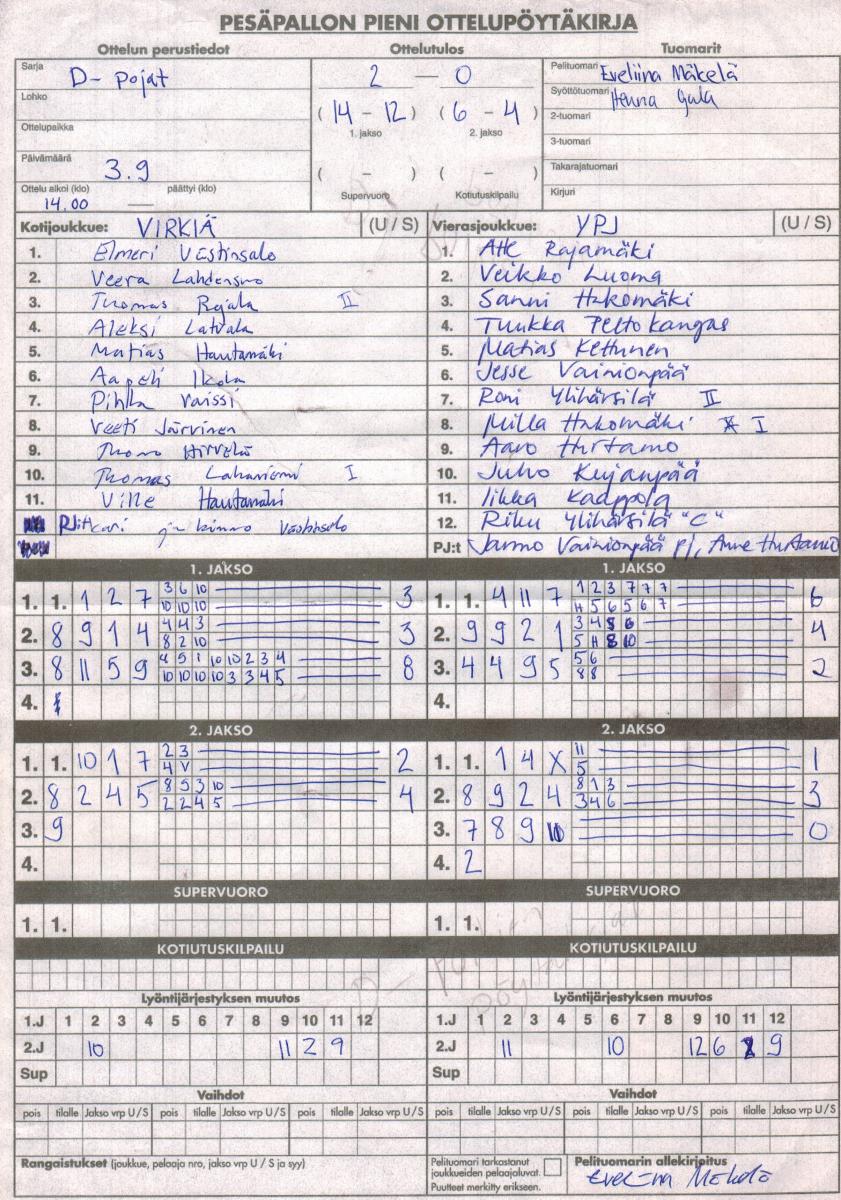 PESÄPALLON PIENI OTTELUPÖYTÄKIRJA
Ottelun perustiedot
Ottelutulos
Tuomarit
Sarja D- pojat
2 — 0
Pelituomari Eveliina Mäkelä
Lohko
Syöttötuomari Henna
( 14 - 12 ) ( 6 - 4 )
2-tuomari
Ottelupaikka
1. jakso 2. jakso
3-tuomari
Päivämäärä 3.9
( - ) ( - )
Takarajatuomari
Ottelu alkoi (klo) päättyi (klo)
14.00 —
Supervuoro Kotiutuskilpailu
Kirjuri
Kotijoukkue: VIRKIÄ (U / S)
1. Elmeri Västinsalo
2. Veera
3. Thomas Rajala II
4. Aleksi Latvala
5. Matias Hautamäki
6. Aapeli Ikola
7. Pihla Vaissi
8. Veeti Järvinen
9. Thomo Hirvelä
10. Thomas Lahaniemi I
11. Ville Hautamäki
Vierasjoukkue: YPJ (U / S)
1. Atte Rajamäki
2. Veikko Luoma
3. Sanni Hakomäki
4. Tuukka Peltokangas
5. Matias Kettunen
6. Jesse Vainionpää
7. Roni Ylihärsilä II
8. Milla Hakomäki I
9. Aaro Hirtamo
10. Juho Kujanpää
11. Iikka Kaappola
12. Riku Ylihärsilä "C"
PJ:t Jarmo Vainionpää pj, Anne Hirtamo
1. JAKSO
1. 1. 1 2 7 3 6 10 3
10 10 10
2. 8 9 1 4 4 4 3 3
8 2 10
3. 8 11 5 9 4 5 1 10 10 2 3 4 8
10 10 10 10 3 3 4 5
4.
1. JAKSO
1. 1. 4 11 7 1 2 3 7 7 7 6
4 5 6 5 6 7
2. 9 9 2 1 3 4 5 6 4
5 11 8 10
3. 4 4 9 5 5 6 2
8 8
4.
2. JAKSO
1. 1. 10 1 7 2 3 2
4 V
2. 8 2 4 5 8 5 3 10 4
2 2 4 5
3. 9
4.
2. JAKSO
1. 1. 1 4 X 11 1
5
2. 8 9 2 4 8 1 3 3
3 4 6
3. 7 8 9 10 0
4. 2
SUPERVUORO
1. 1.
SUPERVUORO
1. 1.
KOTIUTUSKILPAILU
KOTIUTUSKILPAILU
Lyöntijärjestyksen muutos
1.J 1 2 3 4 5 6 7 8 9 10 11 12
2.J 10 11 2 9
Sup
Lyöntijärjestyksen muutos
1.J 1 2 3 4 5 6 7 8 9 10 11 12
2.J 11 10 12 6 9
Sup
Vaihdot
pois tilalle Jakso vrp U / S pois tilalle Jakso vrp U / S pois tilalle Jakso vrp U / S
Vaihdot
pois tilalle Jakso vrp U / S pois tilalle Jakso vrp U / S pois tilalle Jakso vrp U / S
Rangaistukset (joukkue, pelaaja nro, jakso vrp U / S ja syy)
Pelituomari tarkastanut
joukkueiden pelaajaluvat.
Puutteet merkitty erikseen.
Pelituomarin allekirjoitus
Eveliina Mäkelä